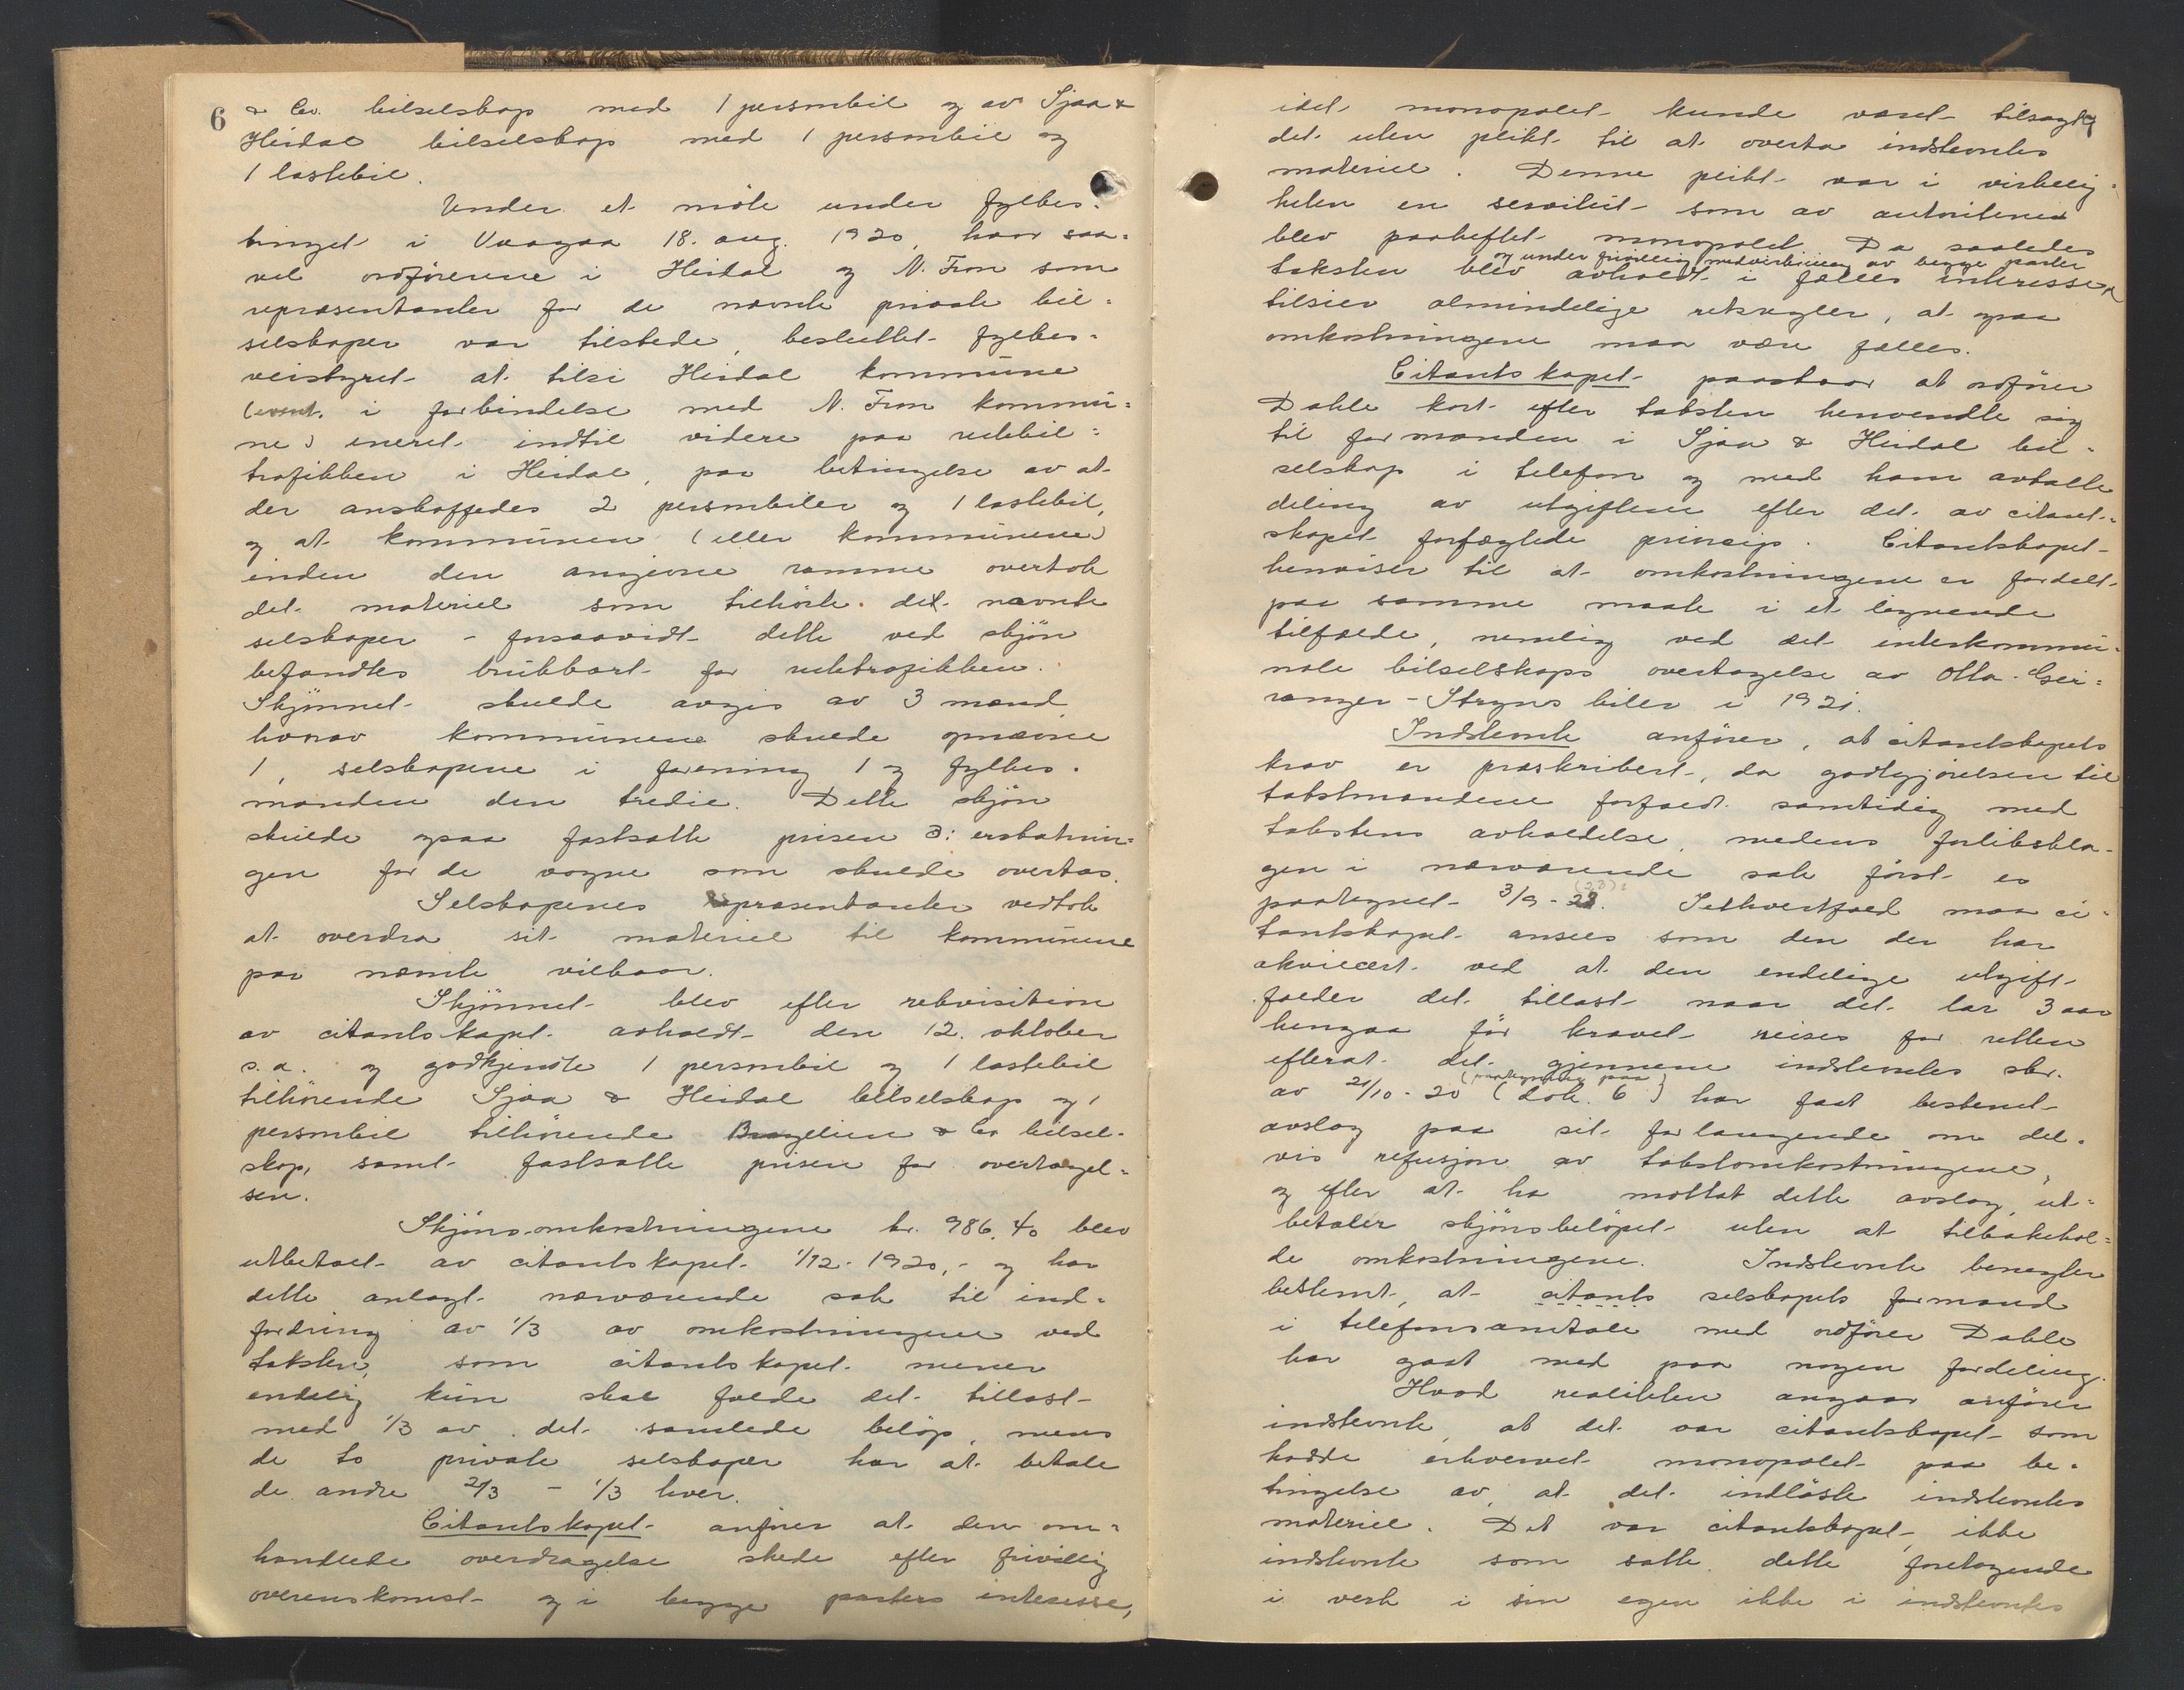 6
& Co. bilselskap med 1 personbil og av Sjoa &
Heidal bilselskap med 1 personbil og
1 lastebil.
Under et möte under fylkes=
tinget i Vaagaa 18. aug. 1920, hvor saa=
vel ordförerene i Heidal og N. Fron som
repræsentanter for de nævnte private bil=
selskaper var tilstede, besluttet fylkes=
veistyret at tilsi Heidal kommune
(event. i forbindelse med N. Fron kommu=
ne) eneret indtil videre paa rutebil=
trafikken i Heidal, paa betingelse av at
der anskaffedes 2 personbiler og 1 lastebil,
og at kommunen (eller kommunene)
inden den angivne ramme overtok
det materiel som tilhörte det nævnte
selskaper - forsaavidt dette ved skjön
befandtes brukbart for rutetrafikken.
Skjönnet skulde avgis av 3 mænd
hvorav kommunene skulde opnævne
1, selskapene i forening 1 og fylkes=
manden den tredie. Dette skjön
skulde ogsaa fastsætte prisen ɔ: erstatnin=
gen for de vogne som skulde overtas.
Selskapenes repræsentanter vedtok
at overdra sit materiel til kommunene
paa nævnte vilkaar.
Skjönnet blev efter rekvisition
av citantskapet avholdt den 12. oktober
s.a. og godkjendte 1 personbil og 1 lastebil
tilhörende Sjoa & Heidal bilselskap og 1
personbil tilhörende Bræglien & Co bilsel=
skap, samt fastsatte prisen for overtagel=
sen.
Skjöns.omkostningene kr. 986,40 blev
utbetalt av citantskapet 1/12-1920,- og har
dette anlagt nærværende sak til ind=
fordring av 1/3 av omkostningene ved
taksten, som citantskapet mener
endelig kun skal falde det tillast
med 1/3 av det samlede belöp, mens
de to private selskaper har at betale
de andre 2/3 - 1/3 hver.
Citantskapet anförer at den om=
handlede overdragelse skede efter frivillig
overenskomst og i begge parters interesse,
idet monopolet kunde været tilsagt
det uten plikt til at overta indstevntes
materiel. Denne plikt var i virkelig=
heten en servitut som av autoritene
blev paaheftet monopolet. Da saaledes
og under frivillig medvirkning av begge parter
taksten blev avholdt i fælles interesse
tilsier almindelige retsregler, at ogsaa
omkostningene maa være fælles.
Citantskapet paastaar at ordförer
Dahle kort efter taksten henvendte sig
til formanden i Sjoa & Heidal bil=
selskap i telefon og med ham avtalte
deling av utgiftene efter det av citant=
skapet forfægtede princip. Citantskapet
henviser til at omkostningene er fordelt
paa samme maate i et lignende
tilfælde, nemlig ved det interkommu=
nale bilselskaps overtagelse av Otta-Gei=
ranger-Stryns biler i 1921.
Indstevnte anförer, at citantskapets
krav er præskribert, da godtgjörelsen til
takstmændene forfaldt samtidig med
takstens avholdelse, medens forliksklа=
gen i nærværende sak först er
(23):
paategnet 3/9-23. Iethvertfald maa ci=
tantskapet ansees som den der har
akviecert ved at den endelige utgift
falder det tillast naar det lar 3 aar
hengaa för kravet reises for retten
efterat det gjennem indstevntes skr.
(paategning paa)
av 21/10-20 (dok. 6) har faat bestemt
avslag paa sit forlangende om del=
vis refusjon av takstomkostningene,
og efter at ha mottat dette avslag, ut=
betaler skjönsbelöpet uten at tilbakehol=
de omkostningene. Indstevnte benegter
bestemt, at citants selskapets formand
i telefonsamtale med ordförer Dahle
har gaat med paa nogen fordeling.
Hvad realiteten angaar anförer
indstevnte, at det var citantskapet som
hadde erhvervet monopolet paa be=
tingelse av, at det indlöste indstevntes
materiel. Det var citantskapet, ikke
indstevnte som satte dette foretagende
i verk i sin egen ikke i indstevntes